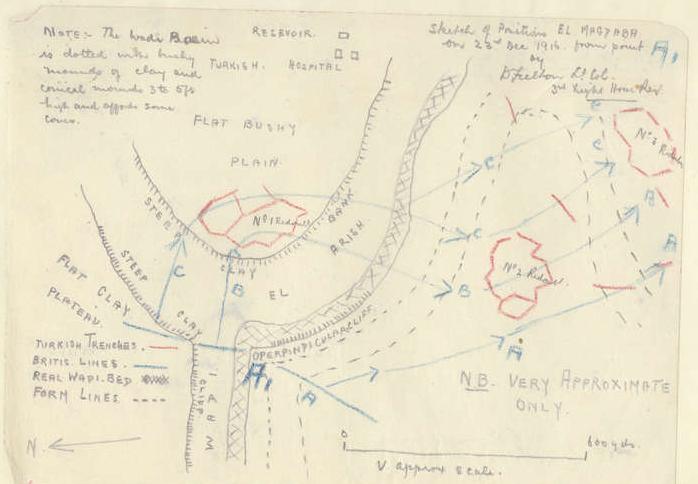 NOTE:- The Wadi Basin
is dotted with bushy
mounds of clay and
conical mounds 3 to 5ft
high and affords some
cover.
RESERVOIR.
TURKISH. HOSPITAL
Sketch of Positions EL MAGTABA
on 23rd Dec 1916. from point A1
by
Lt Col.
3rd Light Horse Reg.
FLAT BUSHY
PLAIN.
No 1 Redoubt
No 2 Redoubt.
No 3 Redoubt
STEEP
CLAY
BANK
EL
ARISH
STEEP
CLAY
FLAT CLAY
PLATEAU.
C
B
C
C
C
C
B
B
A
A
A
A1
PERPINDICULAR CLIFF
CLIFF
TURKISH TRENCHES.
BRITIS. LINES.
REAL WADI-BED
FORM LINES
N.B. VERY APPROXIMATE
ONLY.
N.
0
600 yds.
V. approx scale.